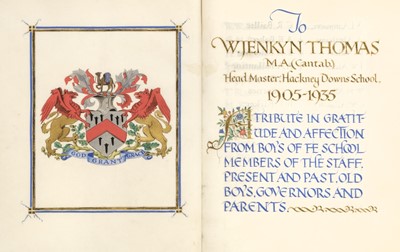 GOD GRANT GRACE
To
W.JENKYN THOMAS
M.A.(Cantab)
Head Master: Hackney Downs School.
1905-1935
A TRIBUTE IN GRATIT-
UDE AND AFFECTION
FROM BOYS OF THE SCHOOL
MEMBERS OF THE STAFF,
PRESENT AND PAST, OLD
BOYS, GOVERNORS AND
PARENTS.